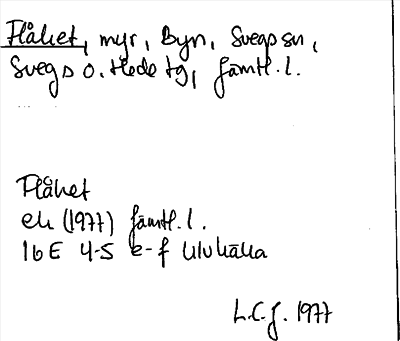 Flåket, myr, Byn, Svegs sn,
Svegs o. Hede tg, Jämtl. l.
Flåket
ek (1977) Jämtl. l.
16E 4-5 e-f Ulvkälla
L.C.J. 1977